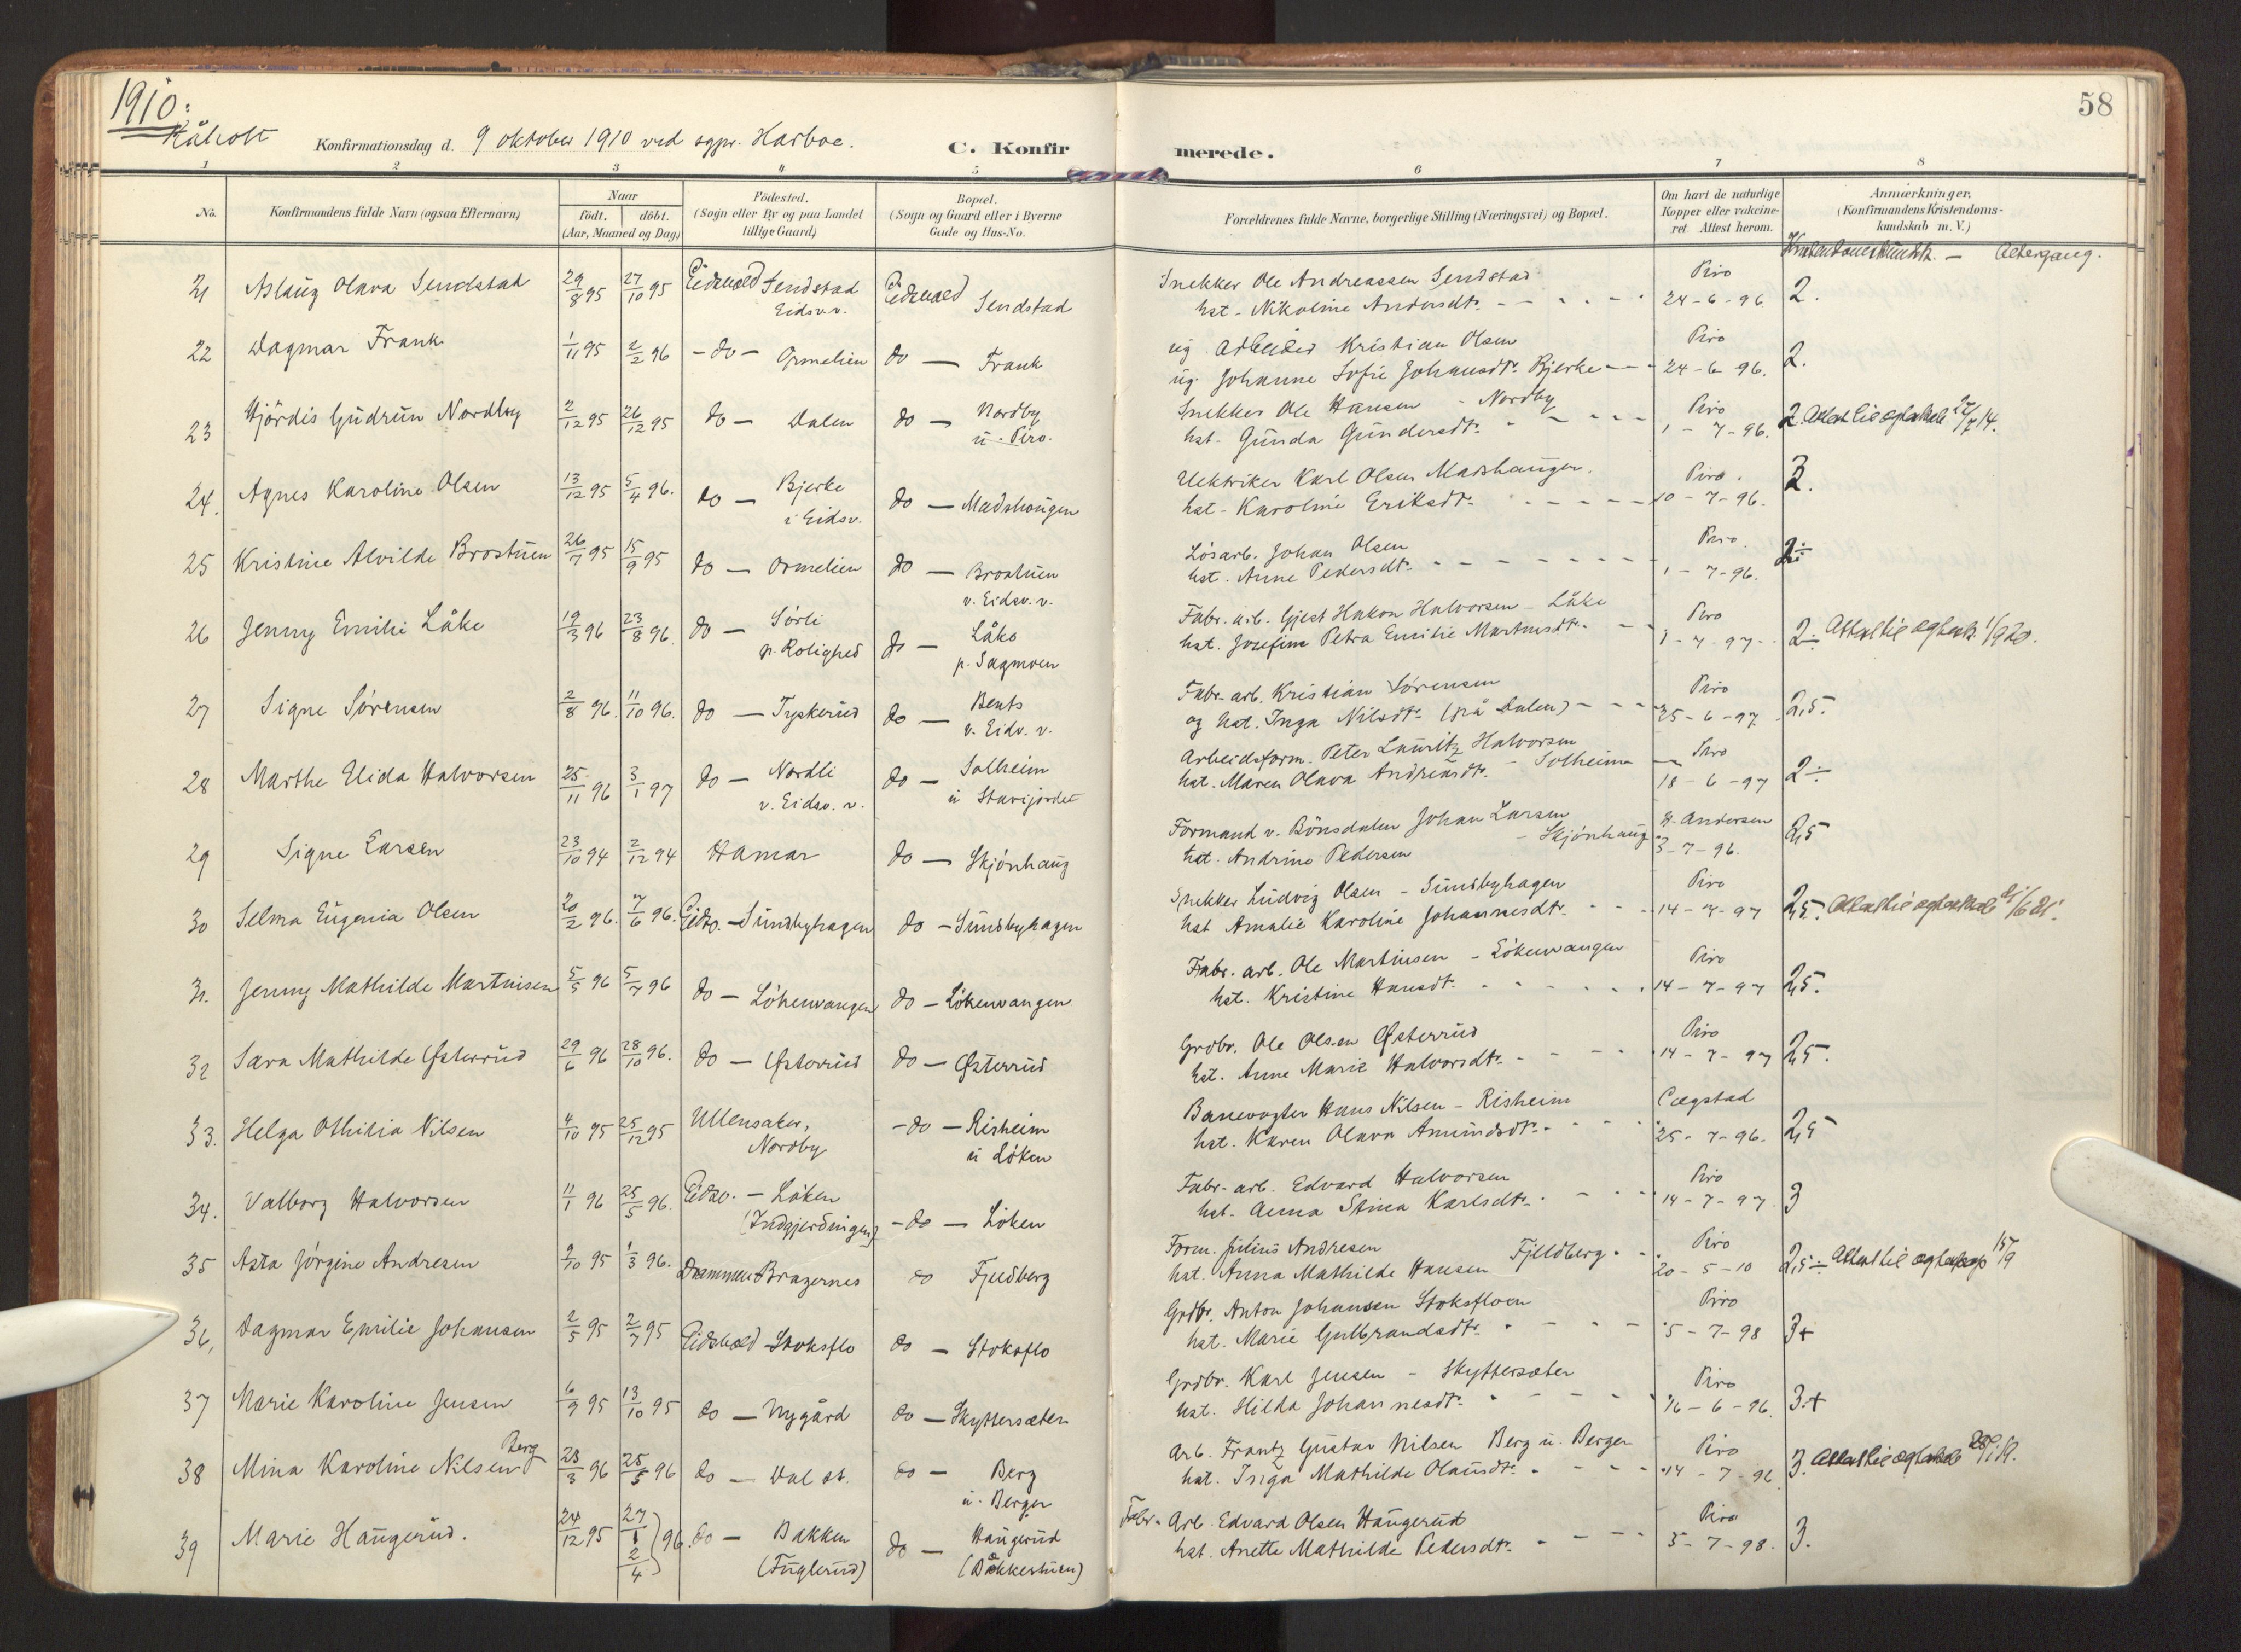 1910.
Råholt
Konfirmationsdag d. 9 oktober 1910 ved sgpr. Harboe.
C. Konfirmerede.
58
1 2 3 4 5 6 7 8
No.
Konfirmandens fulde Navn (ogsaa Efternavn)
Naar
födt. döbt.
(Aar, Maaned og Dag)
Födested.
(Sogn eller By og paa Landet
tillige Gaard)
Bopæl.
(Sogn og Gaard eller i Byerne
Gade og Hus-No.
Forældrenes fulde Navne, borgerlige Stilling (Næringsvei) og Bopæl.
Om havt de naturlige
Kopper eller vaccine-
ret. Attest herom.
Anmærkninger,
(Konfirmandens Kristendoms-
kundskab m. V.)
21 Aslaug Olava Sendstad 29/8 95 27/10 95 Eidsvold Sendstad Eidsv.v. Eidsvold Sendstad
Snekker Ole Andreassen Sendstad
hst. Nikoline Andersdtr. Piro 24-6-96 2.
22 Dagmar Frank 1/11 95 2/2 96 - do - Ormelien do — Frank
ug. Arbeider Kristian Olsen
ug. Johanne Sofie Johansdtr. Bjerke Piro 24-6-96. 2.
23 Hjördis Gudrun Nordby 2/12 95 26/12 95 do — Dalen do — Nordby u. Piro.
Snekker Ole Hansen - Nordby
hst. Gunda Gundersdtr. Piro 1-7-96. 2.
24. Agnes Karoline Olsen 13/12 95 5/4 96. do — Bjerke i Eidsv. do — Madshaugen
Elektriker Karl Olsen Madshaugen.
hst. Karoline Eriksdtr. Piro. 10-7-96.
25 Kristine Alvilde Brostuen 26/7 95 15/9 95 do — Ormelien do — Brostuen v. Eidsv. v.
Lösarb. Johan Olsen
hst. Anne Pedersdtr. Piro. 1-7-96. 2÷
26 Jenny Emilie Låke 19/3 96 23/8 96. do — Sörli p. Rolighed do — Låke p. Sagmoen
Fabr. arb. Gjest Hakon Halvorsen - Låke
hst. Josefine Petra Emilie Martinsdtr. Piro 1-7-97 2÷
27 Signe Sörensen 2/8 96. 11/10 96. do — Tyskerud do — Bents v. Eidv. v.
Fabr. arb. Kristian Sörensen
og hst. Inga Nilsdtr. (på Dalen) Piro 25-6-97 2,5.
28 Marthe Elida Halvorsen 25/11 96 3/1 97 do — Nordli v. Eidsv. v. do — Solheim u Starijordet
Arbeidsform. Peter Lauritz Halvorsen
hst. Maren Olava Andreasdtr. - Solheim Piro 18-6-97 2÷
29 Signe Larsen 23/10 94 2/12 94 Hamar do — Skjönhaug
Formand v. Bönsdalen Johan Larsen
hst. Andrine Pedersen - Skjönhaug Andersen 3-7-96. 2,5
30 Selma Eugenia Olsen 20/2 96. 7/6 96. Eidsv. - Sundbyhagen do - Sundbyhagen
Snekker Ludvig Olsen - Sundbyhagen
hst Amalie Karoline Johannesdtr. Piro 14-7-97 2,5.
31. Jenny Mathilde Martinsen 5/5 96 5/7 96 do — Lökenvangen do - Lökenvangen
Fabr. arb. Ole Martinsen - Lökenvangen
hst. Kristine Hansdt. Piro 14-7-97 2,5.
32 Sara Mathilde Østerrud 29/6 96 28/10 96. do — Østerrud do — Østerrud
Grdbr. Ole Olsen Østerrud
hst. Anne Marie Halvorsdtr. Piro 14-7-97 2,5.
33. Helga Othilia Nilsen 4/10 95 25/12 95 Ullensaker, Nordby - do — Risheim u Löken
Banevogter Hans Nilsen - Risheim
hst. Karen Olava Amundsdtr. 25-7-96. 2,5
34. Valborg Halvorsen 11/1 96 25/5 96. Eidsv. - Löken (Indgjerdingen) - do — Löken
Fabr. arb. Edvard Halvorsen
hst. Anna Stina Karlsdtr. Piro 14-7-97 3
35 Asta Jörgine Andresen 9/10 95 1/3 96. Drammen Bragernes do Fjeldberg
Form. Julius Andresen
hst. Anna Mathilde Hansen Fjeldberg Piro 20-5-10 2,5÷
36, Dagmar Emilie Johansen 2/5 95 2/7 95 Eidsvold Stoksflo do — Stoksflo
Grdbr. Anton Johansen Stoksfloen
hst. Marie Gulbrandsdtr. Piro 5-7-98 3+
37 Marie Karoline Jensen 6/9 95 13/10 95 do — Nygård do — Skyttersæter
Grdbr. Karl Jensen - Skyttersæter
hst. Hilda Johannesdtr. Piro 16-6-96. 3+
38 Mina Karoline Nilsen Berg 23/3 96 25/5 96 do — Dal st. do — Berg u. Berger
Arb. Frantz Gustav Nilsen Berg u. Berger
hst. Inga Mathilde Olausdtr. Piro 14-7-96 3.
39 Marie Haugerud. 24/12 95 27/1 2/4 96. do — Bakken (Fuglerud) do — Haugerud (Bakkestuen)
Fabr. Arb. Edvard Olsen Haugerud
hst. Anette Mathilde Pedersdtr. Piro 5-7-98. 3.